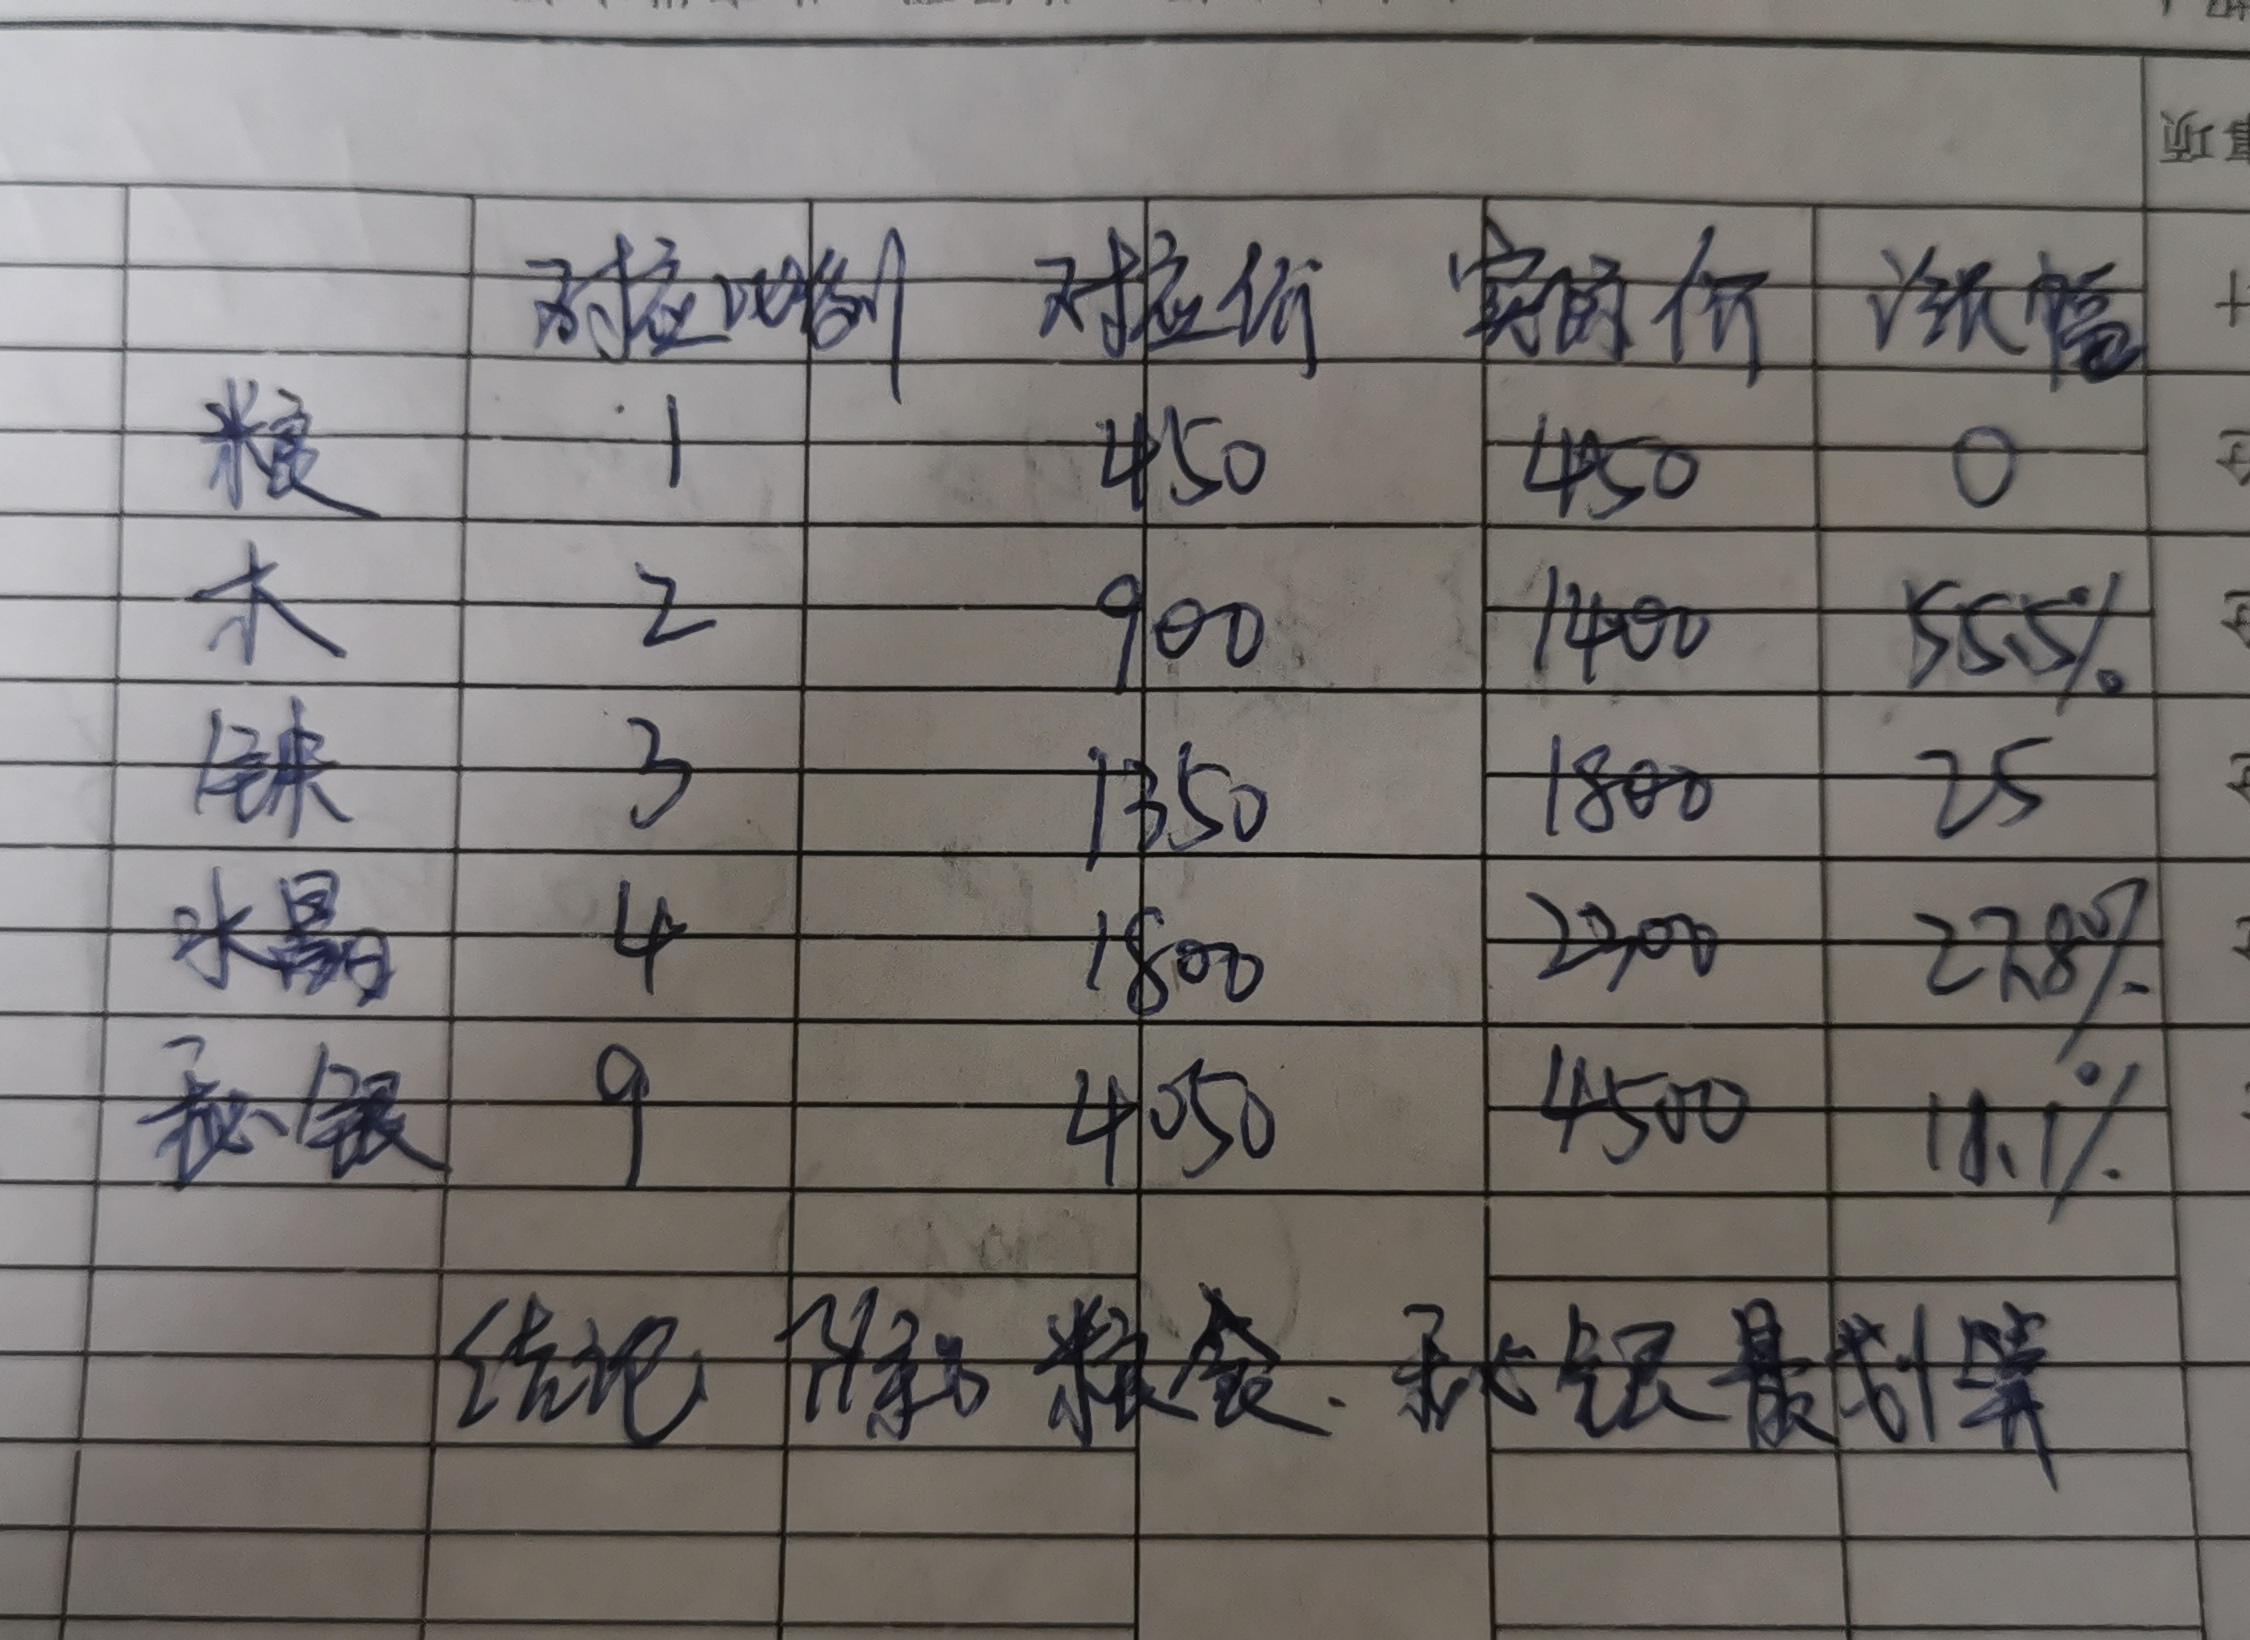 量项
对应比例 对应价 实际价 涨幅
粮 1 450 450 0
木 2 900 1400 55.5%
铁 3 1350 1800 25
水晶 4 1800 2300 27.8%
秘银 9 4050 4500 11.1%
结论 除了粮食.秘银最划算